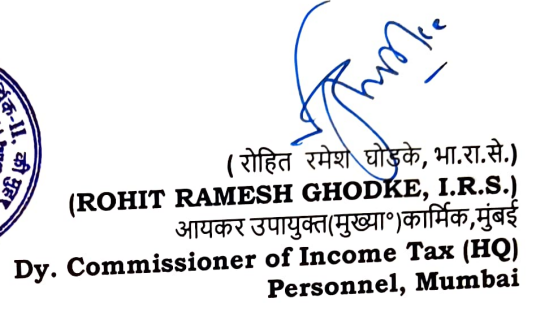 ( रोहित रमेश घोड़के, भा.रा.से.)
(ROHIT RAMESH GHODKE, I.R.S.)
आयकर उपायुक्त(मुख्या°)कार्मिक,मुंबई
Dy. Commissioner of Income Tax (HQ)
Personnel, Mumbai
की मुहर